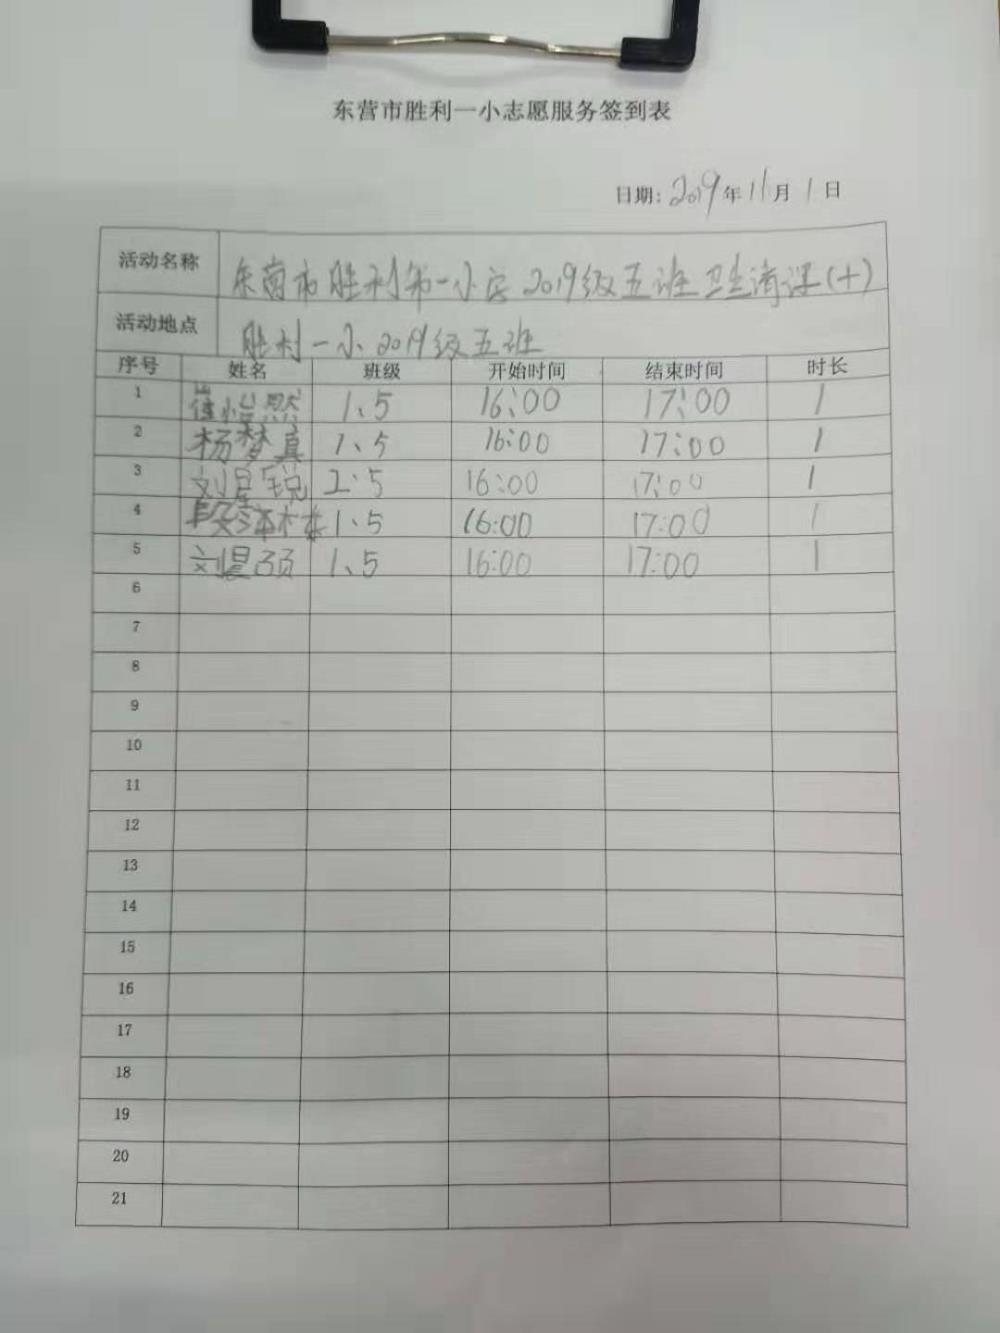 东营市胜利一小志愿服务签到表
日期: 2019年11月1日
活动名称 东营市胜利第一小学2019级五班卫生清洁(十)
活动地点 胜利一小2019级五班
序号 姓名 班级 开始时间 结束时间 时长
1 崔怡然 1、5 16:00 17:00 1
2 杨梦真 1、5 16:00 17:00 1
3 刘星锐 2:5 16:00 17:00 1
4 段泽林 1、5 16:00 17:00 1
5 刘 1、5 16:00 17:00 1
6
7
8
9
10
11
12
13
14
15
16
17
18
19
20
21